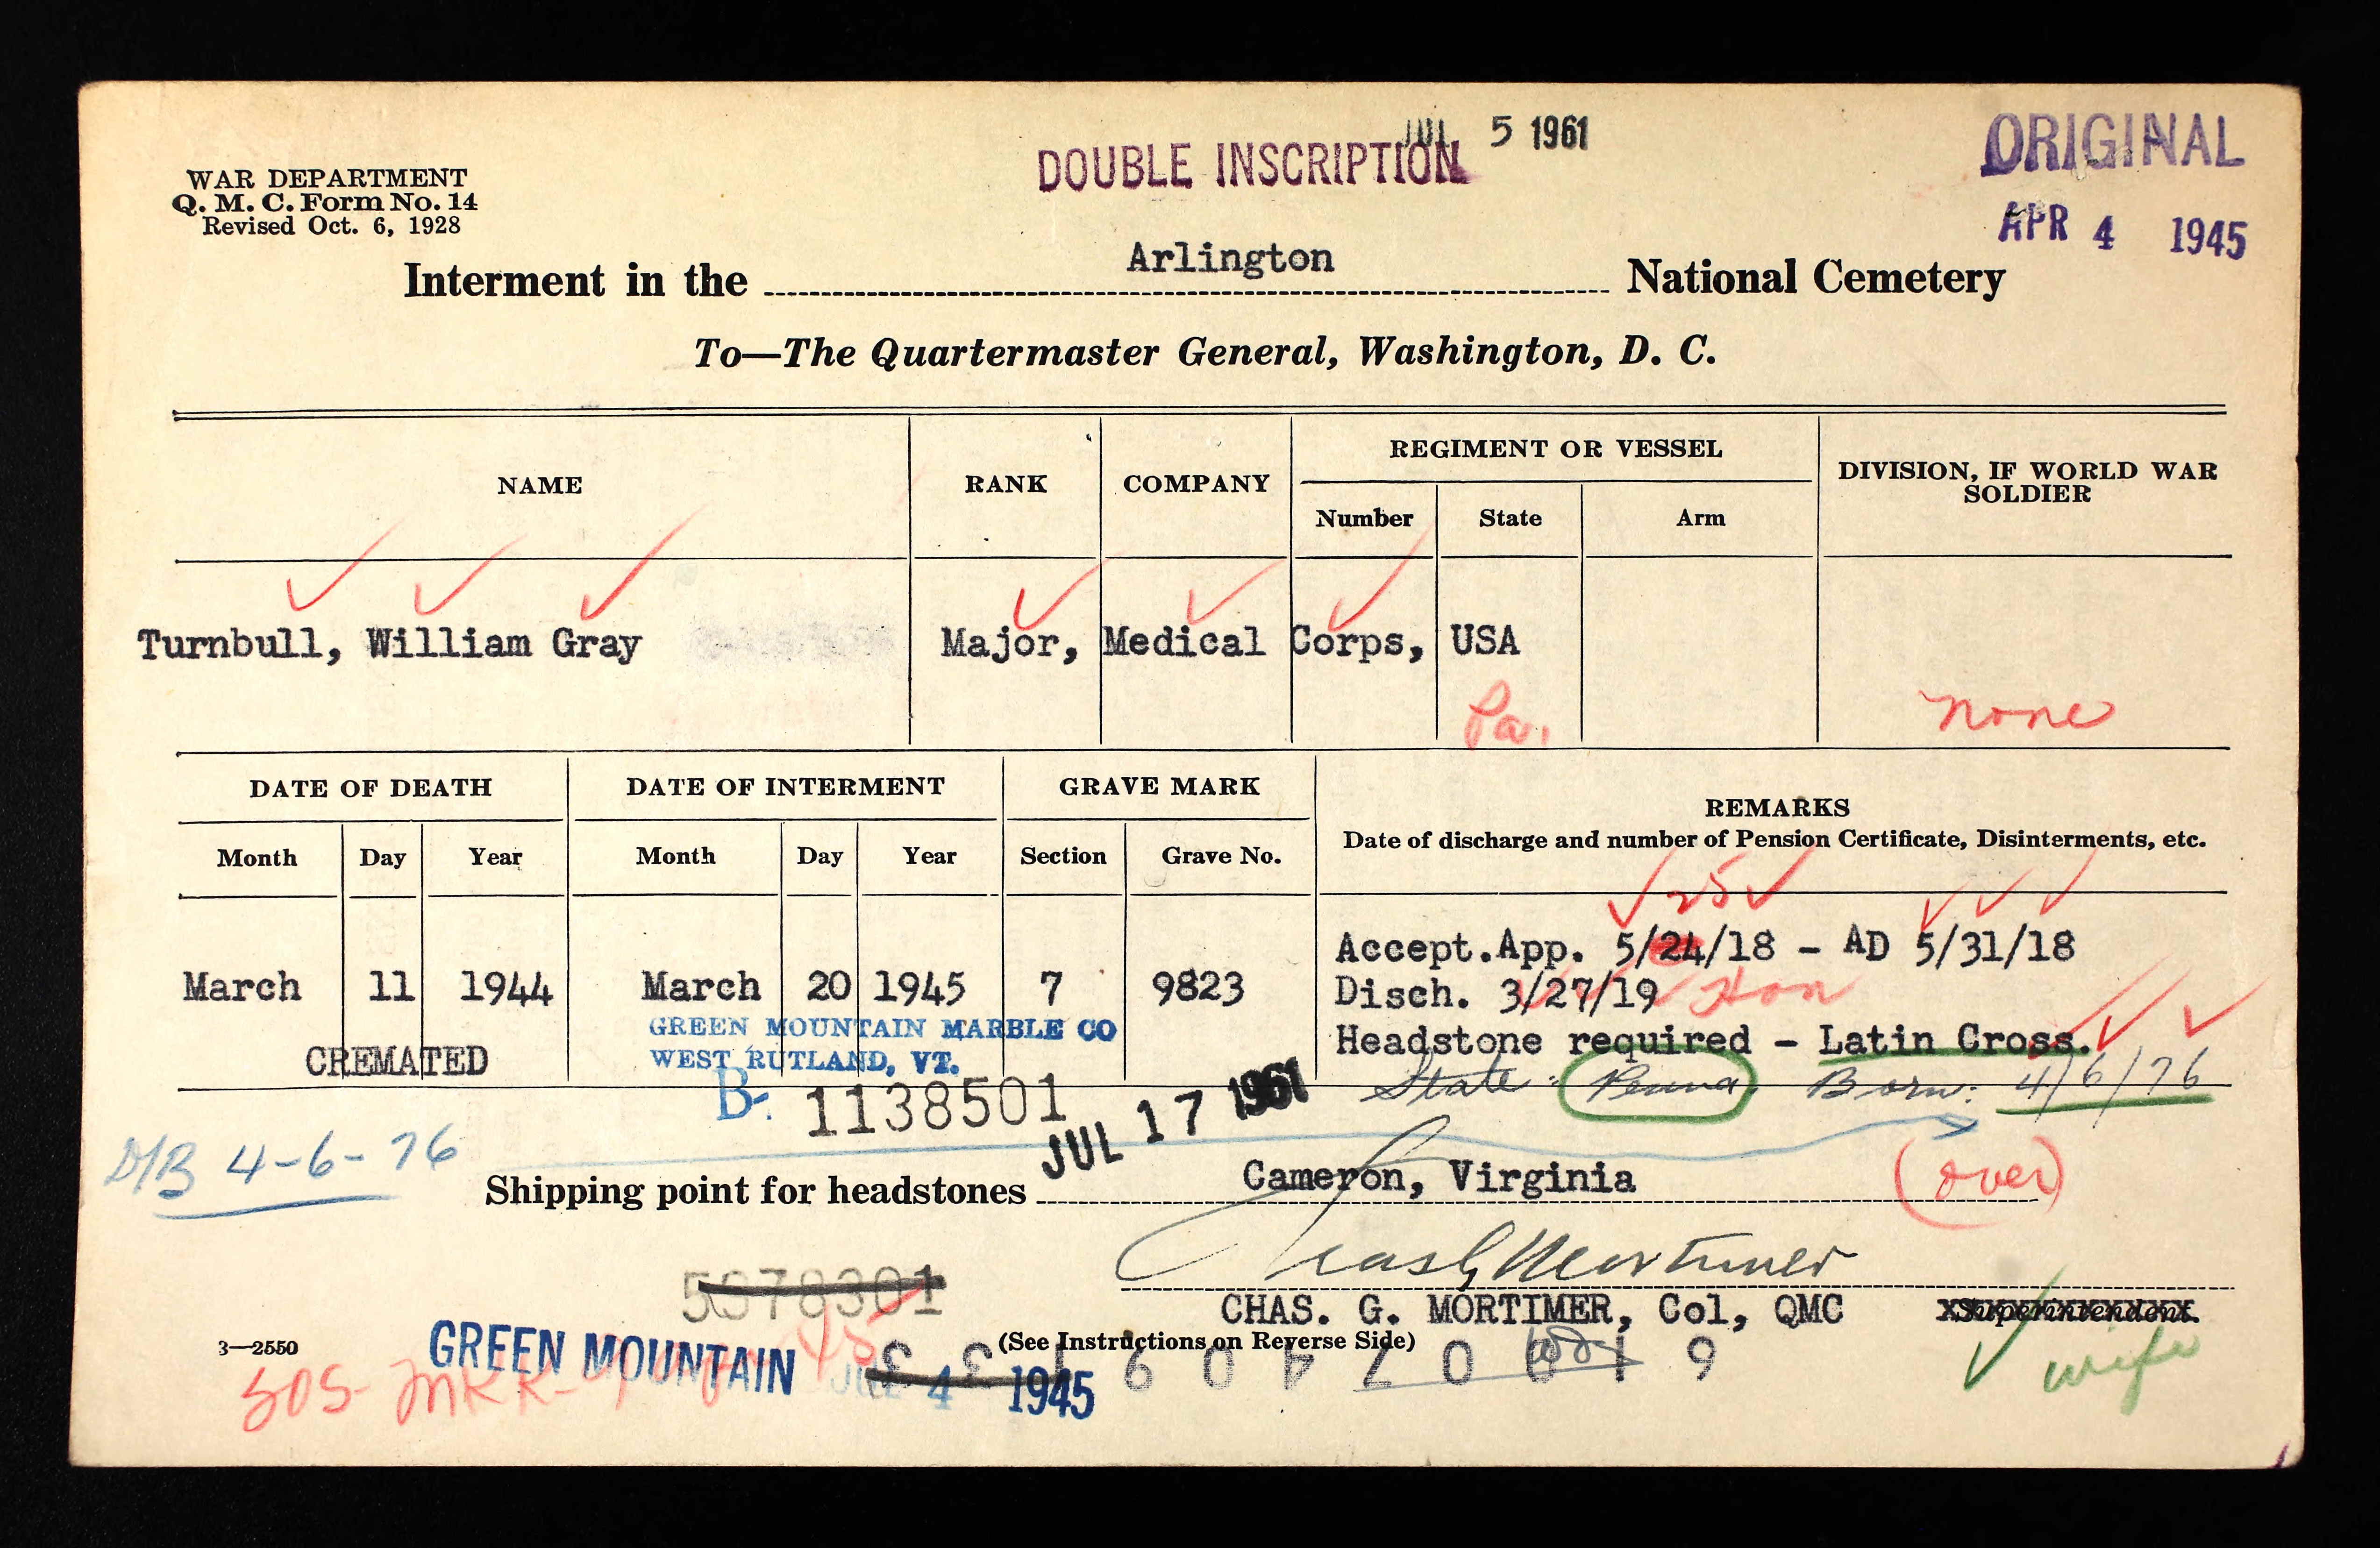 DOUBLE INSCRIPTION JUL 5 1961
ORIGINAL
APR 4 1945
WAR DEPARTMENT
Q. M. C. Form No. 14
Revised Oct. 6, 1928
Interment in the Arlington National Cemetery
To—The Quartermaster General, Washington, D. C.
NAME
RANK
COMPANY
REGIMENT OR VESSEL
Number
State
Arm
DIVISION, IF WORLD WAR
SOLDIER
Turnbull, William Gray
Major, Medical Corps, USA
Pa.
none
DATE OF DEATH
Month
Day
Year
DATE OF INTERMENT
Month
Day
Year
GRAVE MARK
Section
Grave No.
REMARKS
Date of discharge and number of Pension Certificate, Disinterments, etc.
March 11 1944
CREMATED
March 20 1945
7
9823
25
Accept.App. 5/24/18 - AD 5/31/18
Disch. 3/27/19 Hon
Headstone required - Latin Cross.
State: Penna Born: 4/6/76
GREEN MOUNTAIN MARBLE CO
WEST RUTLAND, VT.
B- 1138501
JUL 17 1961
D/B 4-6-76
Shipping point for headstones Cameron, Virginia
(over)
Chas G Mortimer
CHAS. G. MORTIMER, Col, QMC
Superintendent.
5078301
3—2550
(See Instructions on Reverse Side)
GREEN MOUNTAIN
4 1945
wife